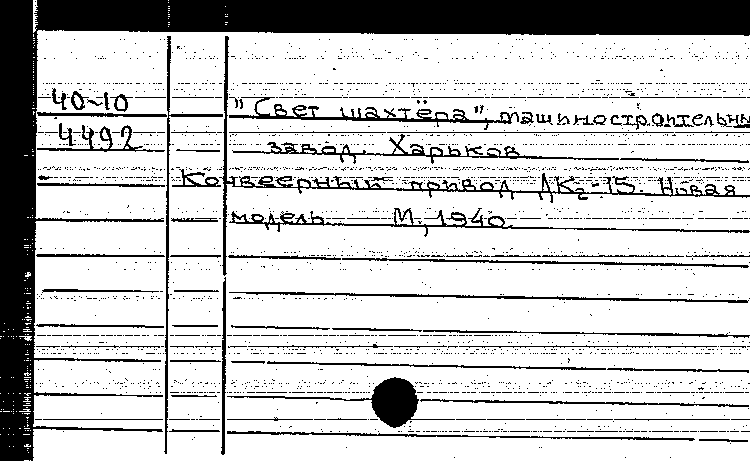 40-10
"Свет шахтёра", машиностроительны
4492
завод. Харьков
Конвеерный привод ДК2-15. Новая
модель. М., 1940.